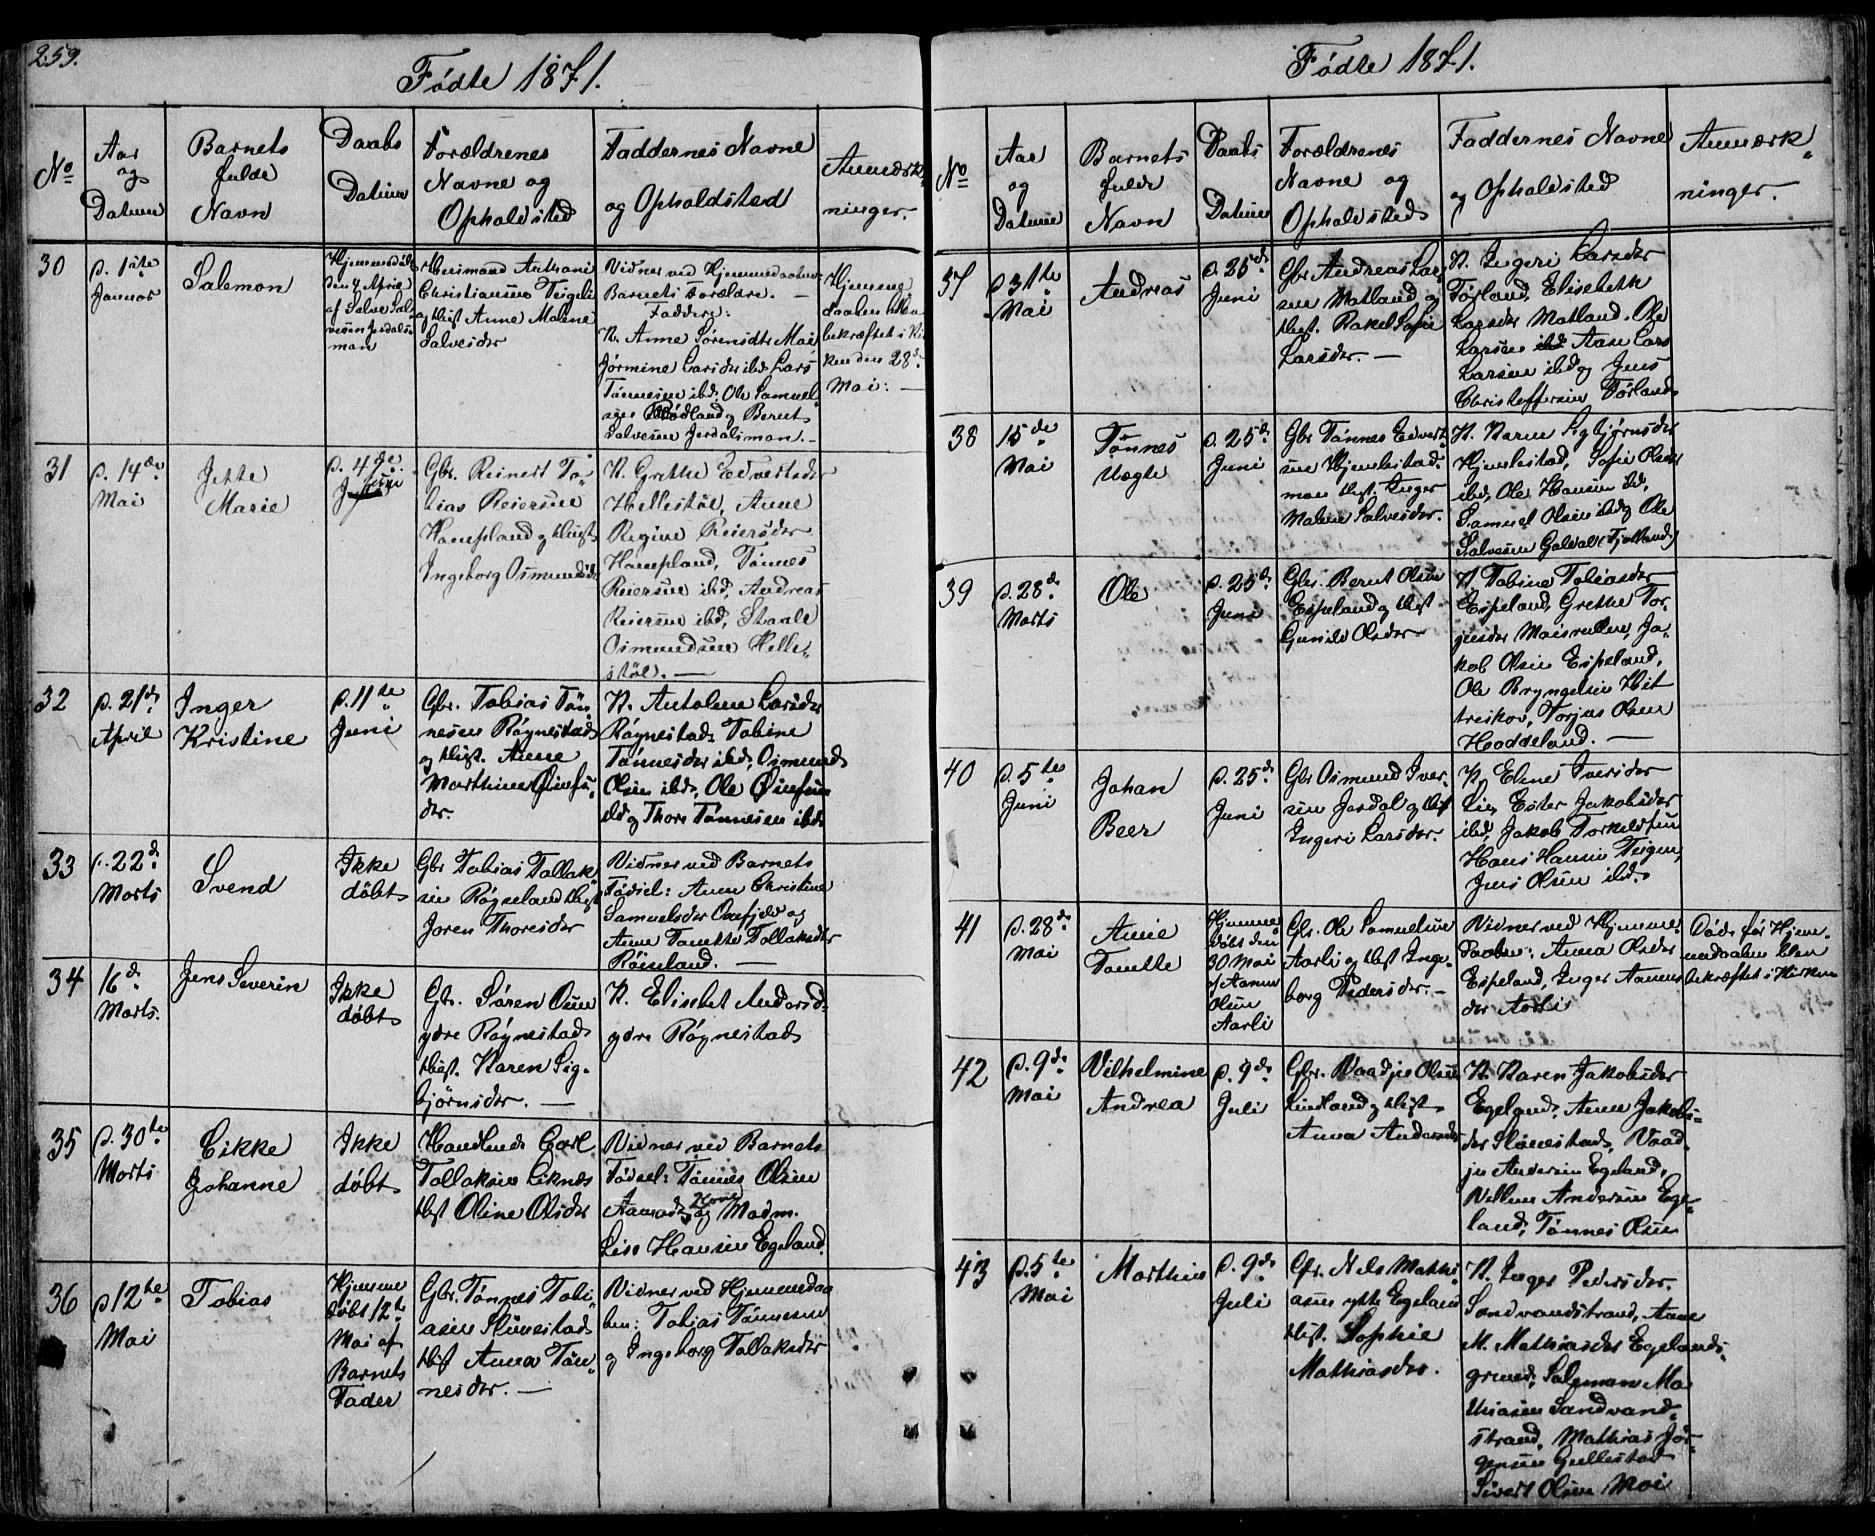 259.
Fødte 1871.
No
Aar
og
Datum
Barnets
fulde
Navn
Daabs
Datum
Forældrenes
Navne og
Opholdsted
Faddernes Navne
og Opholdsted
Anmærk
ninger.
30
d. 1ste
Januar
Salemon
Hjemmedøbt
den 4 April
af Salve Sal
vesen Jerdals
man
Huusmand Anthoni
Christiansen Teigeli
og Hust Anne Malene
Salvesdr
Vidner ved Hjemmedaaben
Barnets Forældre. —
Faddere:
K. Anne Sørensdtr Moi
Jørmine Larsdr ibd. Lars
Tønnesen ibd, Ole Samuel
sen Rødland og Bernt
Salvesen Jerdalsmon. —
Hjemme
daaben blev
bekræftet i Kir
ken den 28de
Mai: —
31
d. 14de
Mai
Jette
Marie
d. 4de
Juni
Gbr. Reinert To
bias Reiersen
Hampland og Hust
Ingeborg Osmundsdr
K. Grethe Edvertsdr
Hellestøl, Anne
Regine Reiersdr
Hampland, Tønnes
Reiersen ibd, Andreas
Reiersen ibd, Staale
Osmundsen Helle
støl. —
32
d. 21de
April
Inger
Kristine
d. 11te
Juni
Gbr. Tobias Tøn
nesen Røynestad
og Hust. Anne
Marthine
dr.
K. Antolene Larsdr
Røynestad, Tobine
Tønnesdr ibd, Osmund
Olsen ibd, Ole
ibd og Thore Tønnesen ibd.
33
d. 22de
Marts
Svend
Ikke
døbt
Gbr Tobias Tollak
sen Røyseland Hust
Joren Thoresdr
Vidner ved Barnets
Fødsel: Anne Christine
Samuelsdr Omfjeld og
Anne Tonette Tollaksdr
Røiseland. —
34
16de
Marts.
Jens Severin
Ikke
døbt
Gbr. Søren Osen
ydre Røynestad
Hust. Karen Sig
bjørnsdr. —
K. Elisbet Andersd.
ydre Røynestad
35
d. 30te
Marts
Cikke
Johanne
Ikke
døbt
Handlende Carl
Tollaksen Liknes
Hust Oline Olsdr
Vidner ved Barnets
Fødsel: Tønnes Olsen
Aamodt og Madm.
Lise Hansen Egeland.
36
d 12te
Mai
Tobias
Hjemme
døbt 12te
Mai af
Barnets
Fader
Gbr. Tønnes Tobi
asen Slimestad
Hust Anna Tøn
nesdr. —
Vidner ved Hjemmedaa
ben: Tobias Tønnesen
og Ingeborg Tollaksdr
Fødte 1871.
No
Aar
og
Datum
Barnets
fulde
Navn
Daabs
Datum
Forældrenes
Navne og
Opholdsted
Faddernes Navne
og Opholdsted
Anmærk
ninger.
37
d 31te
Mai
Andreas
d. 25de
Juni
Gbr Andreas Lar
sen Matland og
Hust. Rakel Sofie
Larsdr. —
K. Ingeri Larsdr
Førland, Elisebeth
Larsdr Matland. Ole
Larsen ibd Aasu Lars
Larsen ibd og Jens
Christoffersen Førland
38
15de
Mai
Tønnes
Uegte
d. 25de
Juni
Gbr Tønnes Edvert
sen Hjemlestad.
mon Hust. Inger
Malene Salvesdr.
K. Karen Sigbjørnsdr
Hjemlestad, Sofie Olsdr
ibd, Ole Hansen ibd,
Samuel Olsen ibd og Ole
Salvesen Galdal (Fjotland)
39
d. 28de
Marts
Ole
d. 25de
Juni
Gbr. Bernt Olsen
Espeland og Hust
Gunild Olsdr
K Tobine Tobiasdr
Espeland, Grethe Tor
jusdr Moisvolden, Ja
kob Olsen Espeland,
Ole Bryngelsen Het
treskov, Torjus Olsen
Hoddeland. —
40
d. 5te
Juni
Johan
Beer
d. 25de
Juni
Gbr Osmund Iver
sen Jerdal og Hust
Ingeri Larsdr.
K. Elene Iversdr
Lie, Ester Jakobsdr
ibd, Jakob Torkelsen
Hans Hansen Teigen,
Jens Olsen ibd.
41
d. 28de
Mai
Anne
Tonette
Hjemme
døbt den
30 Mai
af Aanen
Olsen
Aarli
Gbr. Ole Samuelsen
Aarli og Hust Inge
borg Pedersdr. —
Vidner ved Hjemme
daaben: Anna Olsdr
Espeland, Inger Aanens
dr Aarli
Døde før Hjem
medaaben blev
bekræftet i Kirken
42
d. 9de
Mai
Vilhelmine
Andrea
d. 9de
Juli
Gbr. Vaadje Olsen
Lindland og Hust
Anna Andersdr
K. Karen Jakobsdr
Egeland, Anne Jakobs
dr Slimestad, Vaad
je Andersen Egeland,
Villum Andersen Ege
land, Tønnes Olsen
43
d. 5te
Mai
Marthin
d. 9de
Juli
Gbr. Nels Mathi
asen ytte Egeland
Hust. Sophie
Mathiasdr.
K. Inger Pedersdr.
Sandvandstrand, Anne
M. Mathiasdr Egelands
grend, Salemon Ma
thiasen Sandvand
strand, Mathias Jør
gensen Gullestad
Sivert Olsen Moi